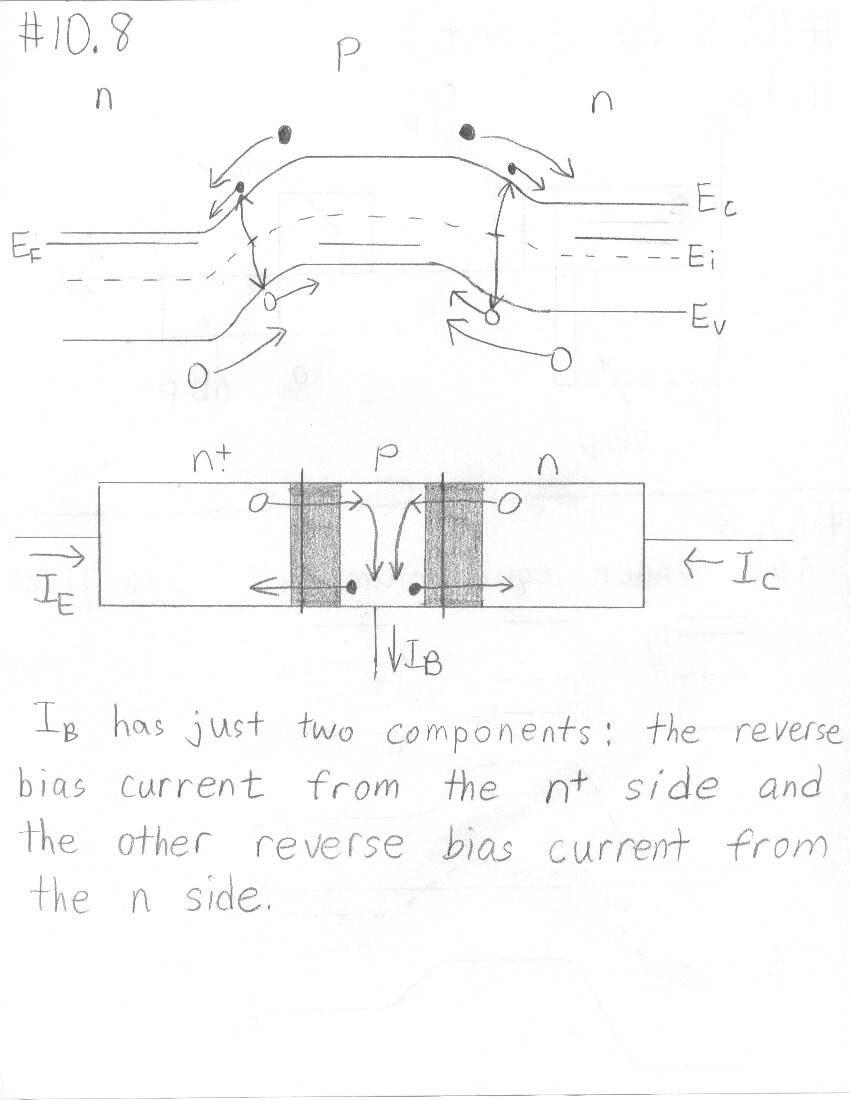 #10.8
P
n
n
E_C
E_F
E_i
E_V
n+
P
n
I_E
I_C
I_B
I_B has just two components: the reverse
bias current from the n+ side and
the other reverse bias current from
the n side.